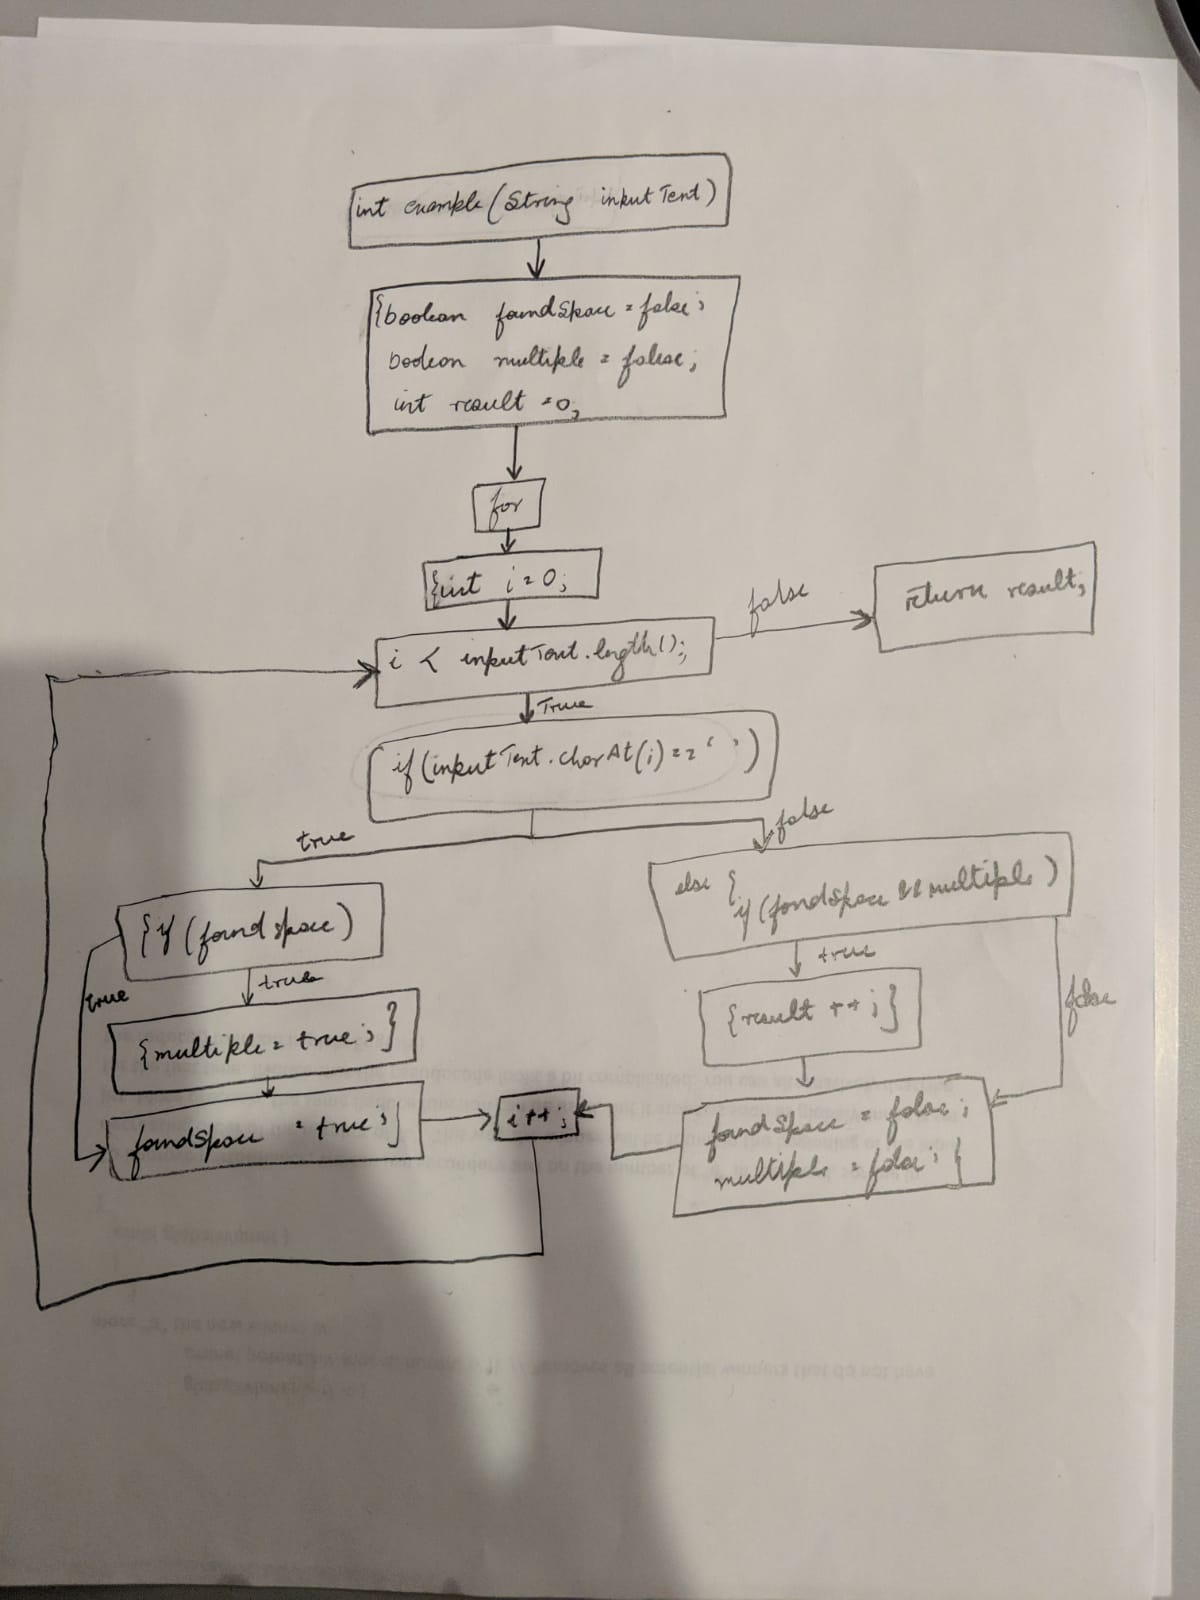 int example (String inputText)
{boolean foundSpace = false;
boolean multiple = false;
int result = 0;
for
{int i = 0;
i < inputText.length();
false
return result;
True
if (inputText.charAt(i) == ' ')
true
false
{if (foundspace)
else {
if (foundSpace && multiple)
true
true
true
false
{multiple = true;}
{result ++;}
foundSpace = true;}
i++;
foundSpace = false;
multiple = false; }